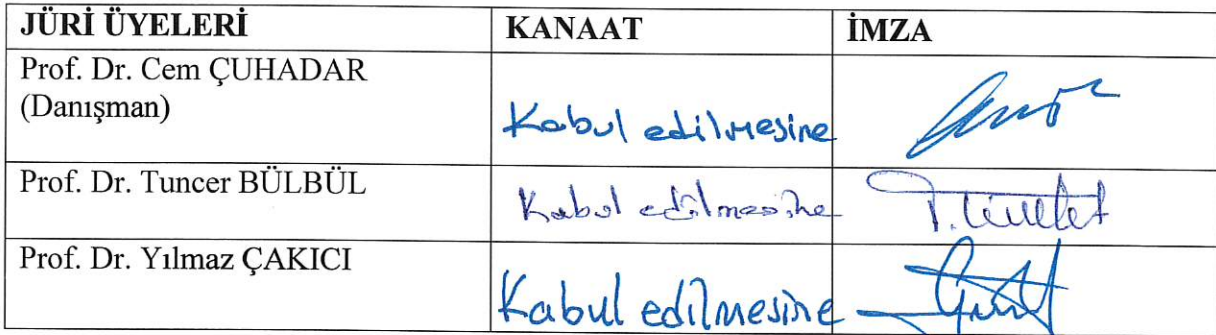 JÜRİ ÜYELERİ KANAAT İMZA
Prof. Dr. Cem ÇUHADAR
(Danışman)
Kabul edilmesine
Prof. Dr. Tuncer BÜLBÜL
Kabul edilmesine
Prof. Dr. Yılmaz ÇAKICI
Kabul edilmesine